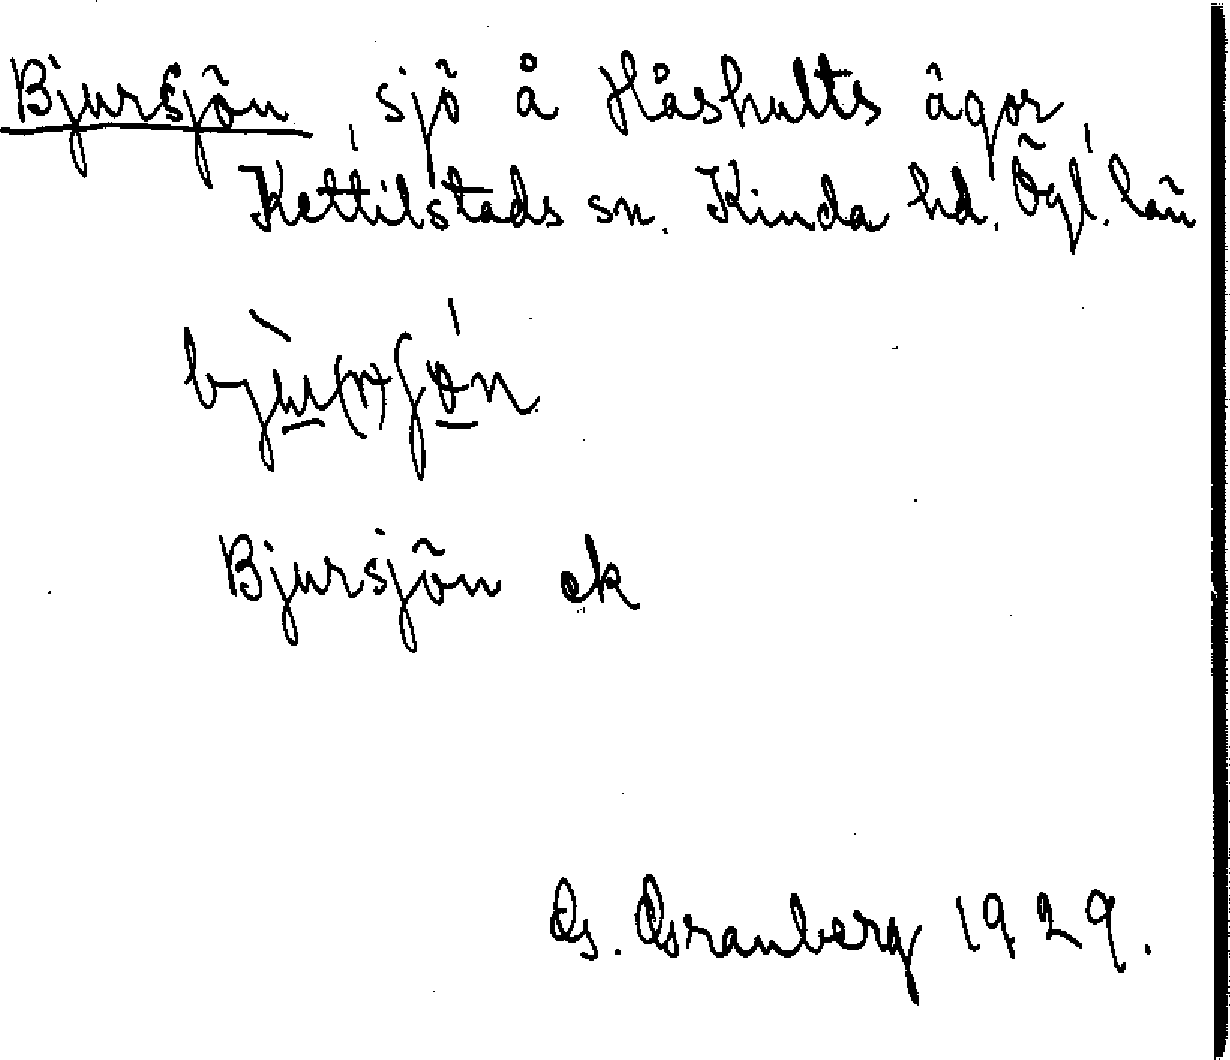 Bjursjön, sjö å Håshults ägor,
Kettilstads sn. Kinda hd. Ögl. län
bjù(r)ʃǿn
Bjursjön ek
G. Granberg 1929.